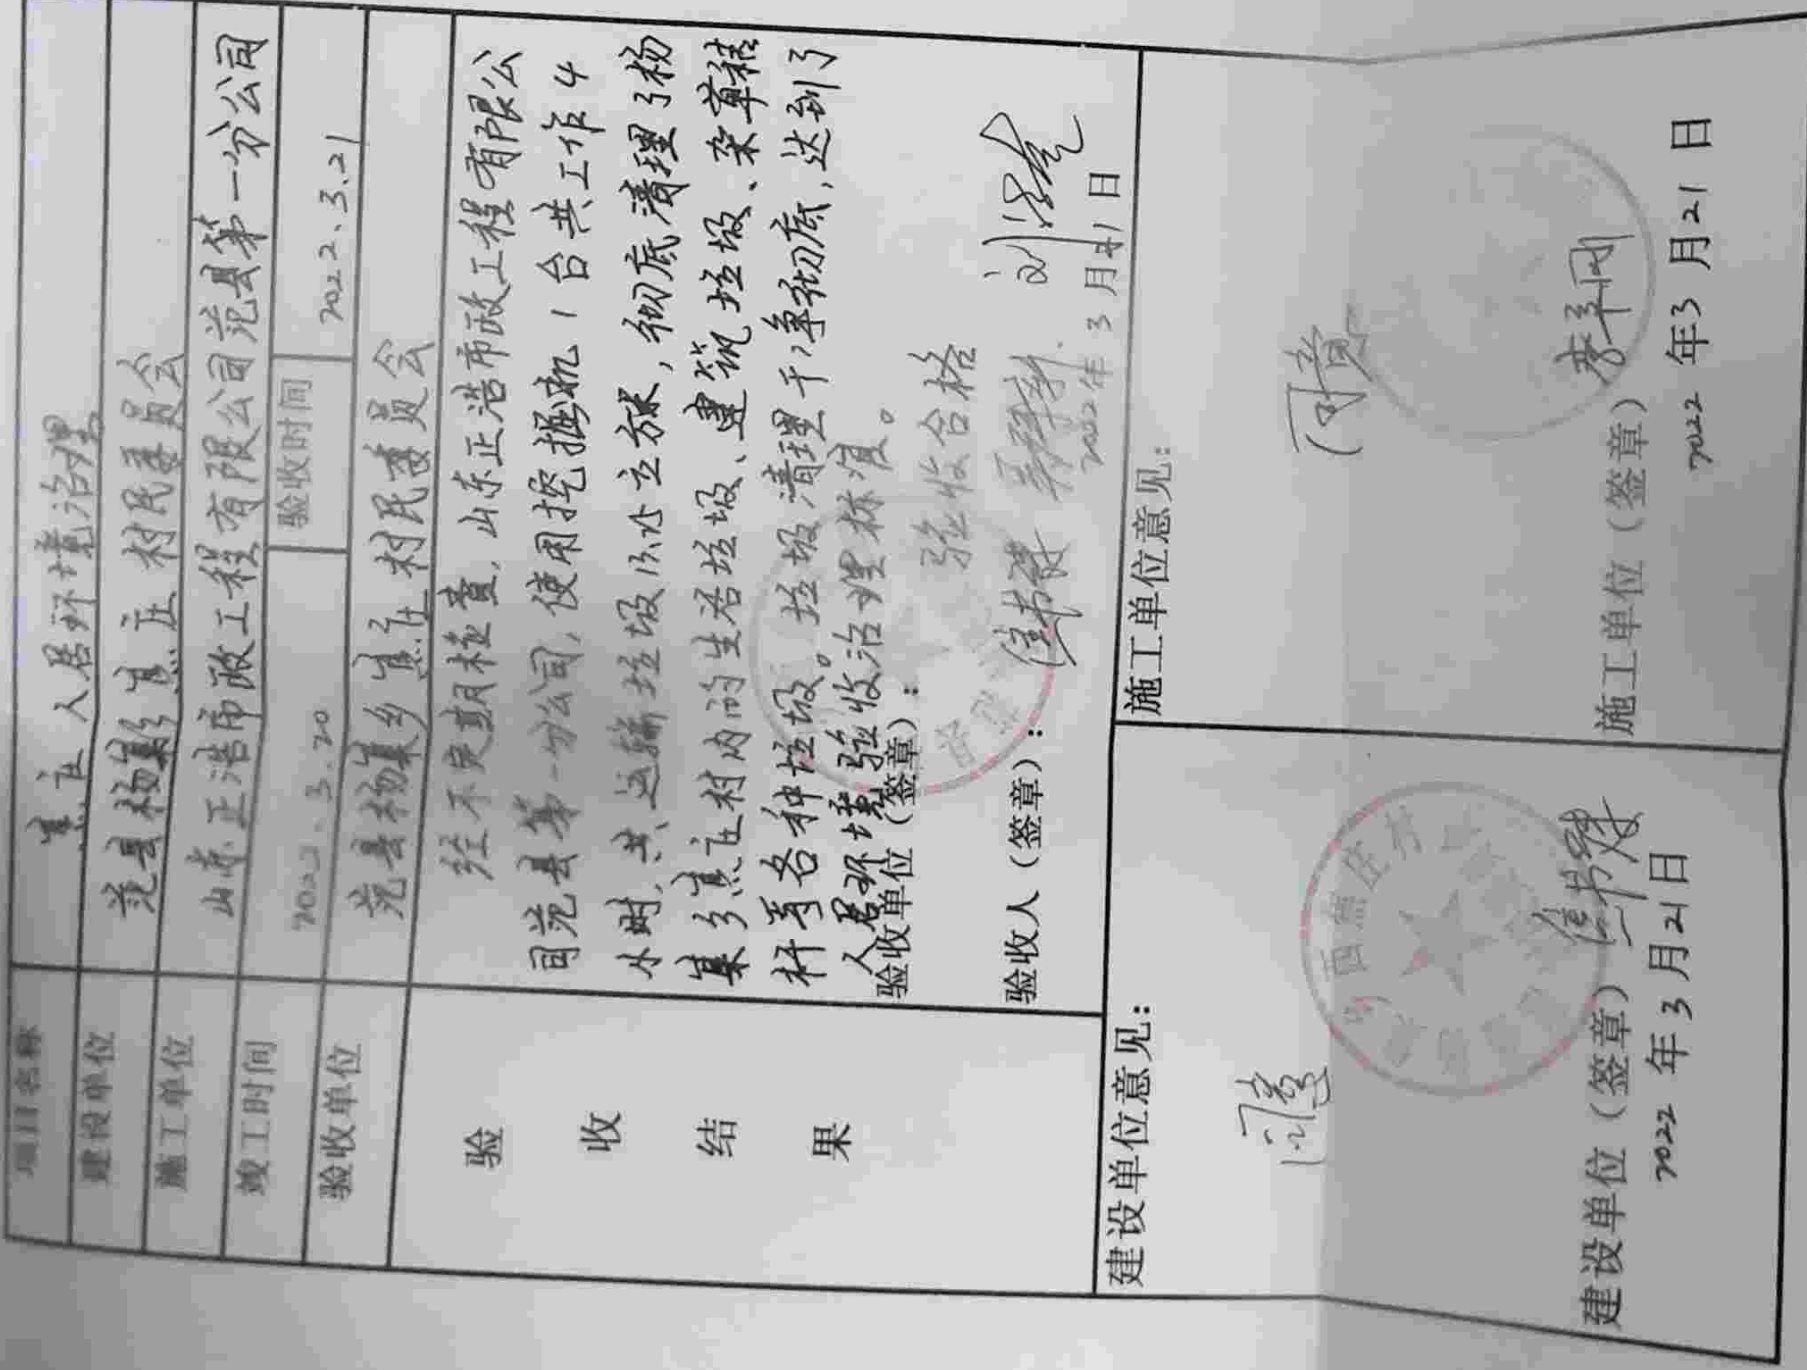 项目名称 焦庄人居环境治理
建设单位 范县杨集乡焦庄村民委员会
施工单位 山东正浩市政工程有限公司范县第一分公司
竣工时间 2022.3.20 验收时间 2022.3.21
验收单位 范县杨集乡焦庄村民委员会
验收结果
经不定期检查,山东正浩市政工程有限公
司范县第一分公司,使用挖掘机1台共工作4
小时,共运输垃圾 立方米,彻底清理了杨
集乡焦庄村内的生活垃圾、建筑垃圾、杂草秸
秆等各种垃圾。垃圾清理干净彻底,达到了
人居环境验收治理标准。
验收单位(签章): 验收合格
验收人(签章):
2022年3月21日
建设单位意见:
同意
建设单位(签章)
2022年3月21日
施工单位意见:
同意
施工单位(签章)
2022年3月21日